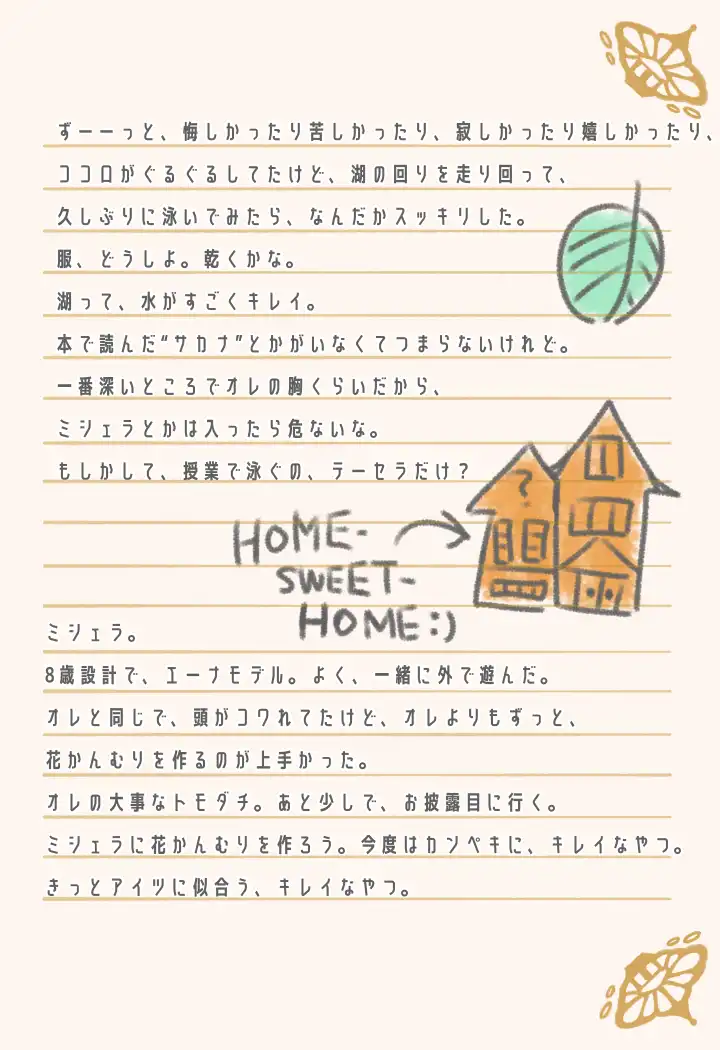 ずーーっと、悔しかったり苦しかったり、寂しかったり嬉しかったり、
ココロがぐるぐるしてたけど、湖の回りを走り回って、
久しぶりに泳いでみたら、なんだかスッキリした。
服、どうしよ。乾くかな。
湖って、水がすごくキレイ。
本で読んだ“サカナ”とかがいなくてつまらないけれど。
一番深いところでオレの胸くらいだから、
ミシェラとかは入ったら危ないな。
もしかして、授業で泳ぐの、テーセラだけ？
?
HOME-
SWEET-
HOME:)
ミシェラ。
8歳設計で、エーナモデル。よく、一緒に外で遊んだ。
オレと同じで、頭がコワれてたけど、オレよりもずっと、
花かんむりを作るのが上手かった。
オレの大事なトモダチ。あと少しで、お披露目に行く。
ミシェラに花かんむりを作ろう。今度はカンペキに、キレイなやつ。
きっとアイツに似合う、キレイなやつ。